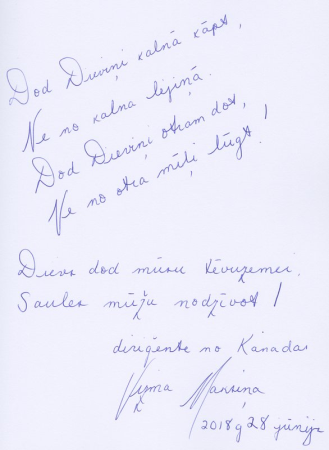 Dod Dieviņi kalnā kāpt,
Ne no kalna lejiņā.
Dod Dieviņi otram dot,
Ne no otra mīļi lūgt!
Dievs dod mūsu tēvuzemei
Saules mūžu nodzīvot!
diriģente no Kanādas
Vizma Maksiņa
2018 g 28 jūnijs